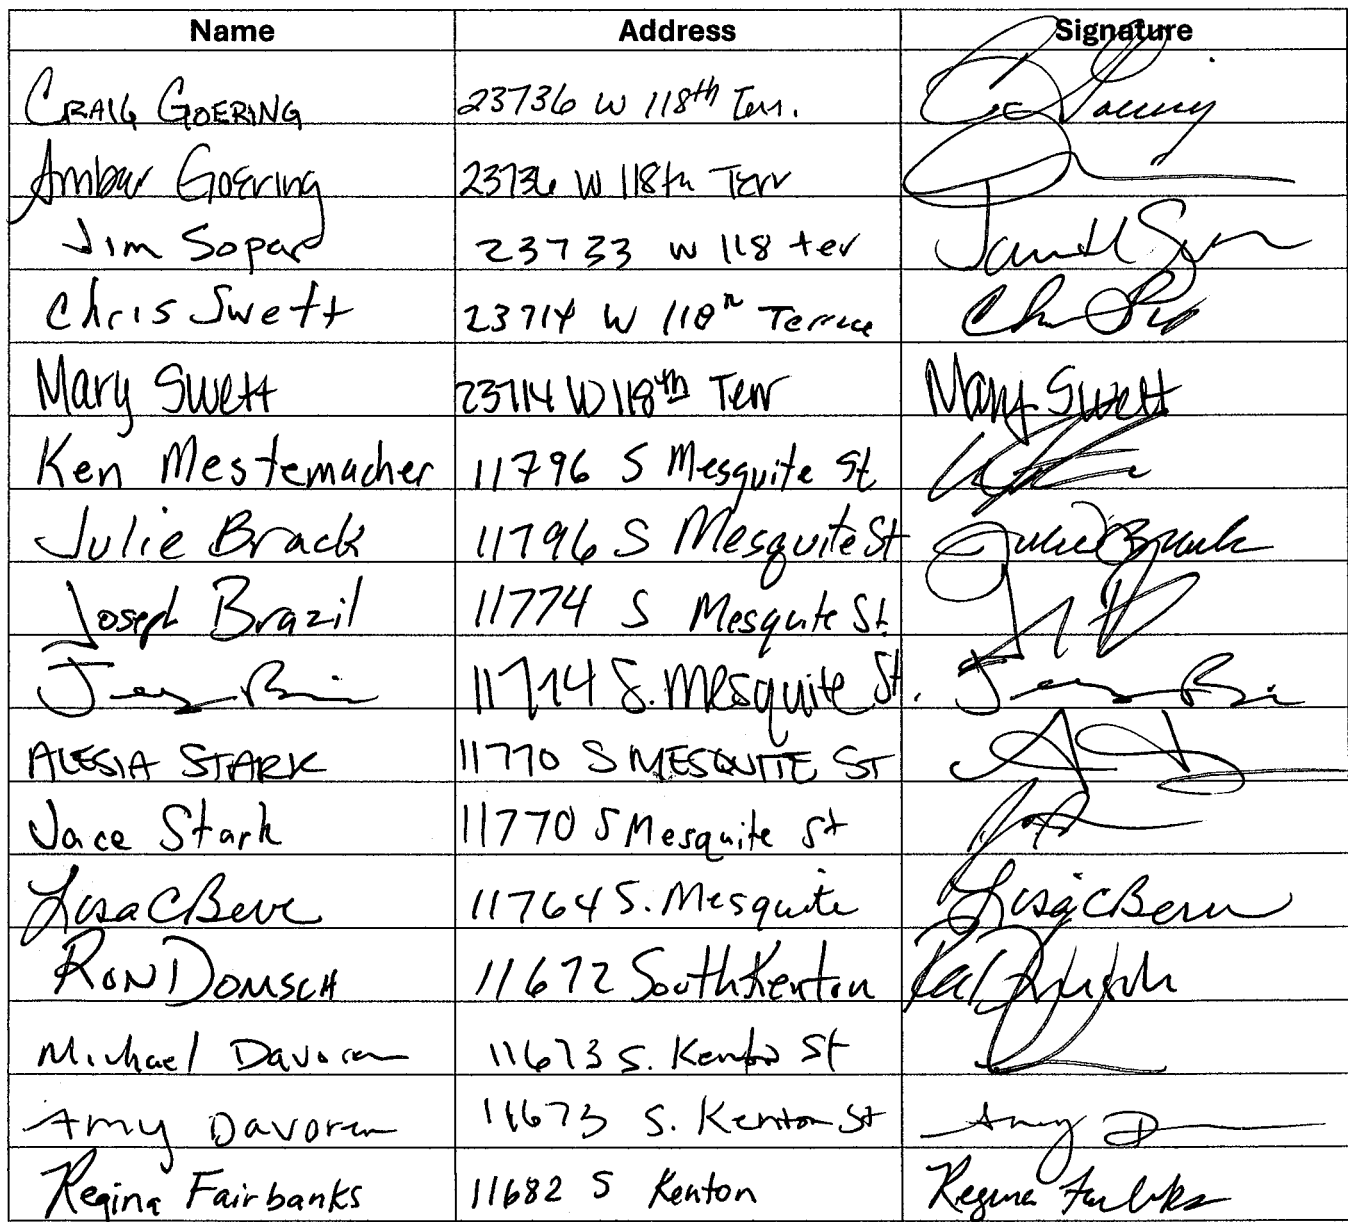 Name Address Signature
CRAIG GOERING 23736 W 118th Terr.
Ambur Goering 23736 W 118th Terr
Jim Sopar 23733 W 118 ter
Chris Swett 23714 W 118th Terrace
Mary Swett 23714 W 118th Terr Mary Swett
Ken Mestemacher 11796 S Mesquite St
Julie Brack 11796 S Mesquite St Julie Brack
Joseph Brazil 11774 S Mesquite St.
11774 S. Mesquite St.
ALESIA STARK 11770 S MESQUITE ST
Jace Stark 11770 S Mesquite St
Lisa C 11764 S. Mesquite Lisa C
RON DOMSCH 11672 South Kenton
Michael Davoren 11673 S. Kenton St
Amy Davoren 11673 S. Kenton St Amy D
Regina Fairbanks 11682 S Kenton Regina Fairbanks